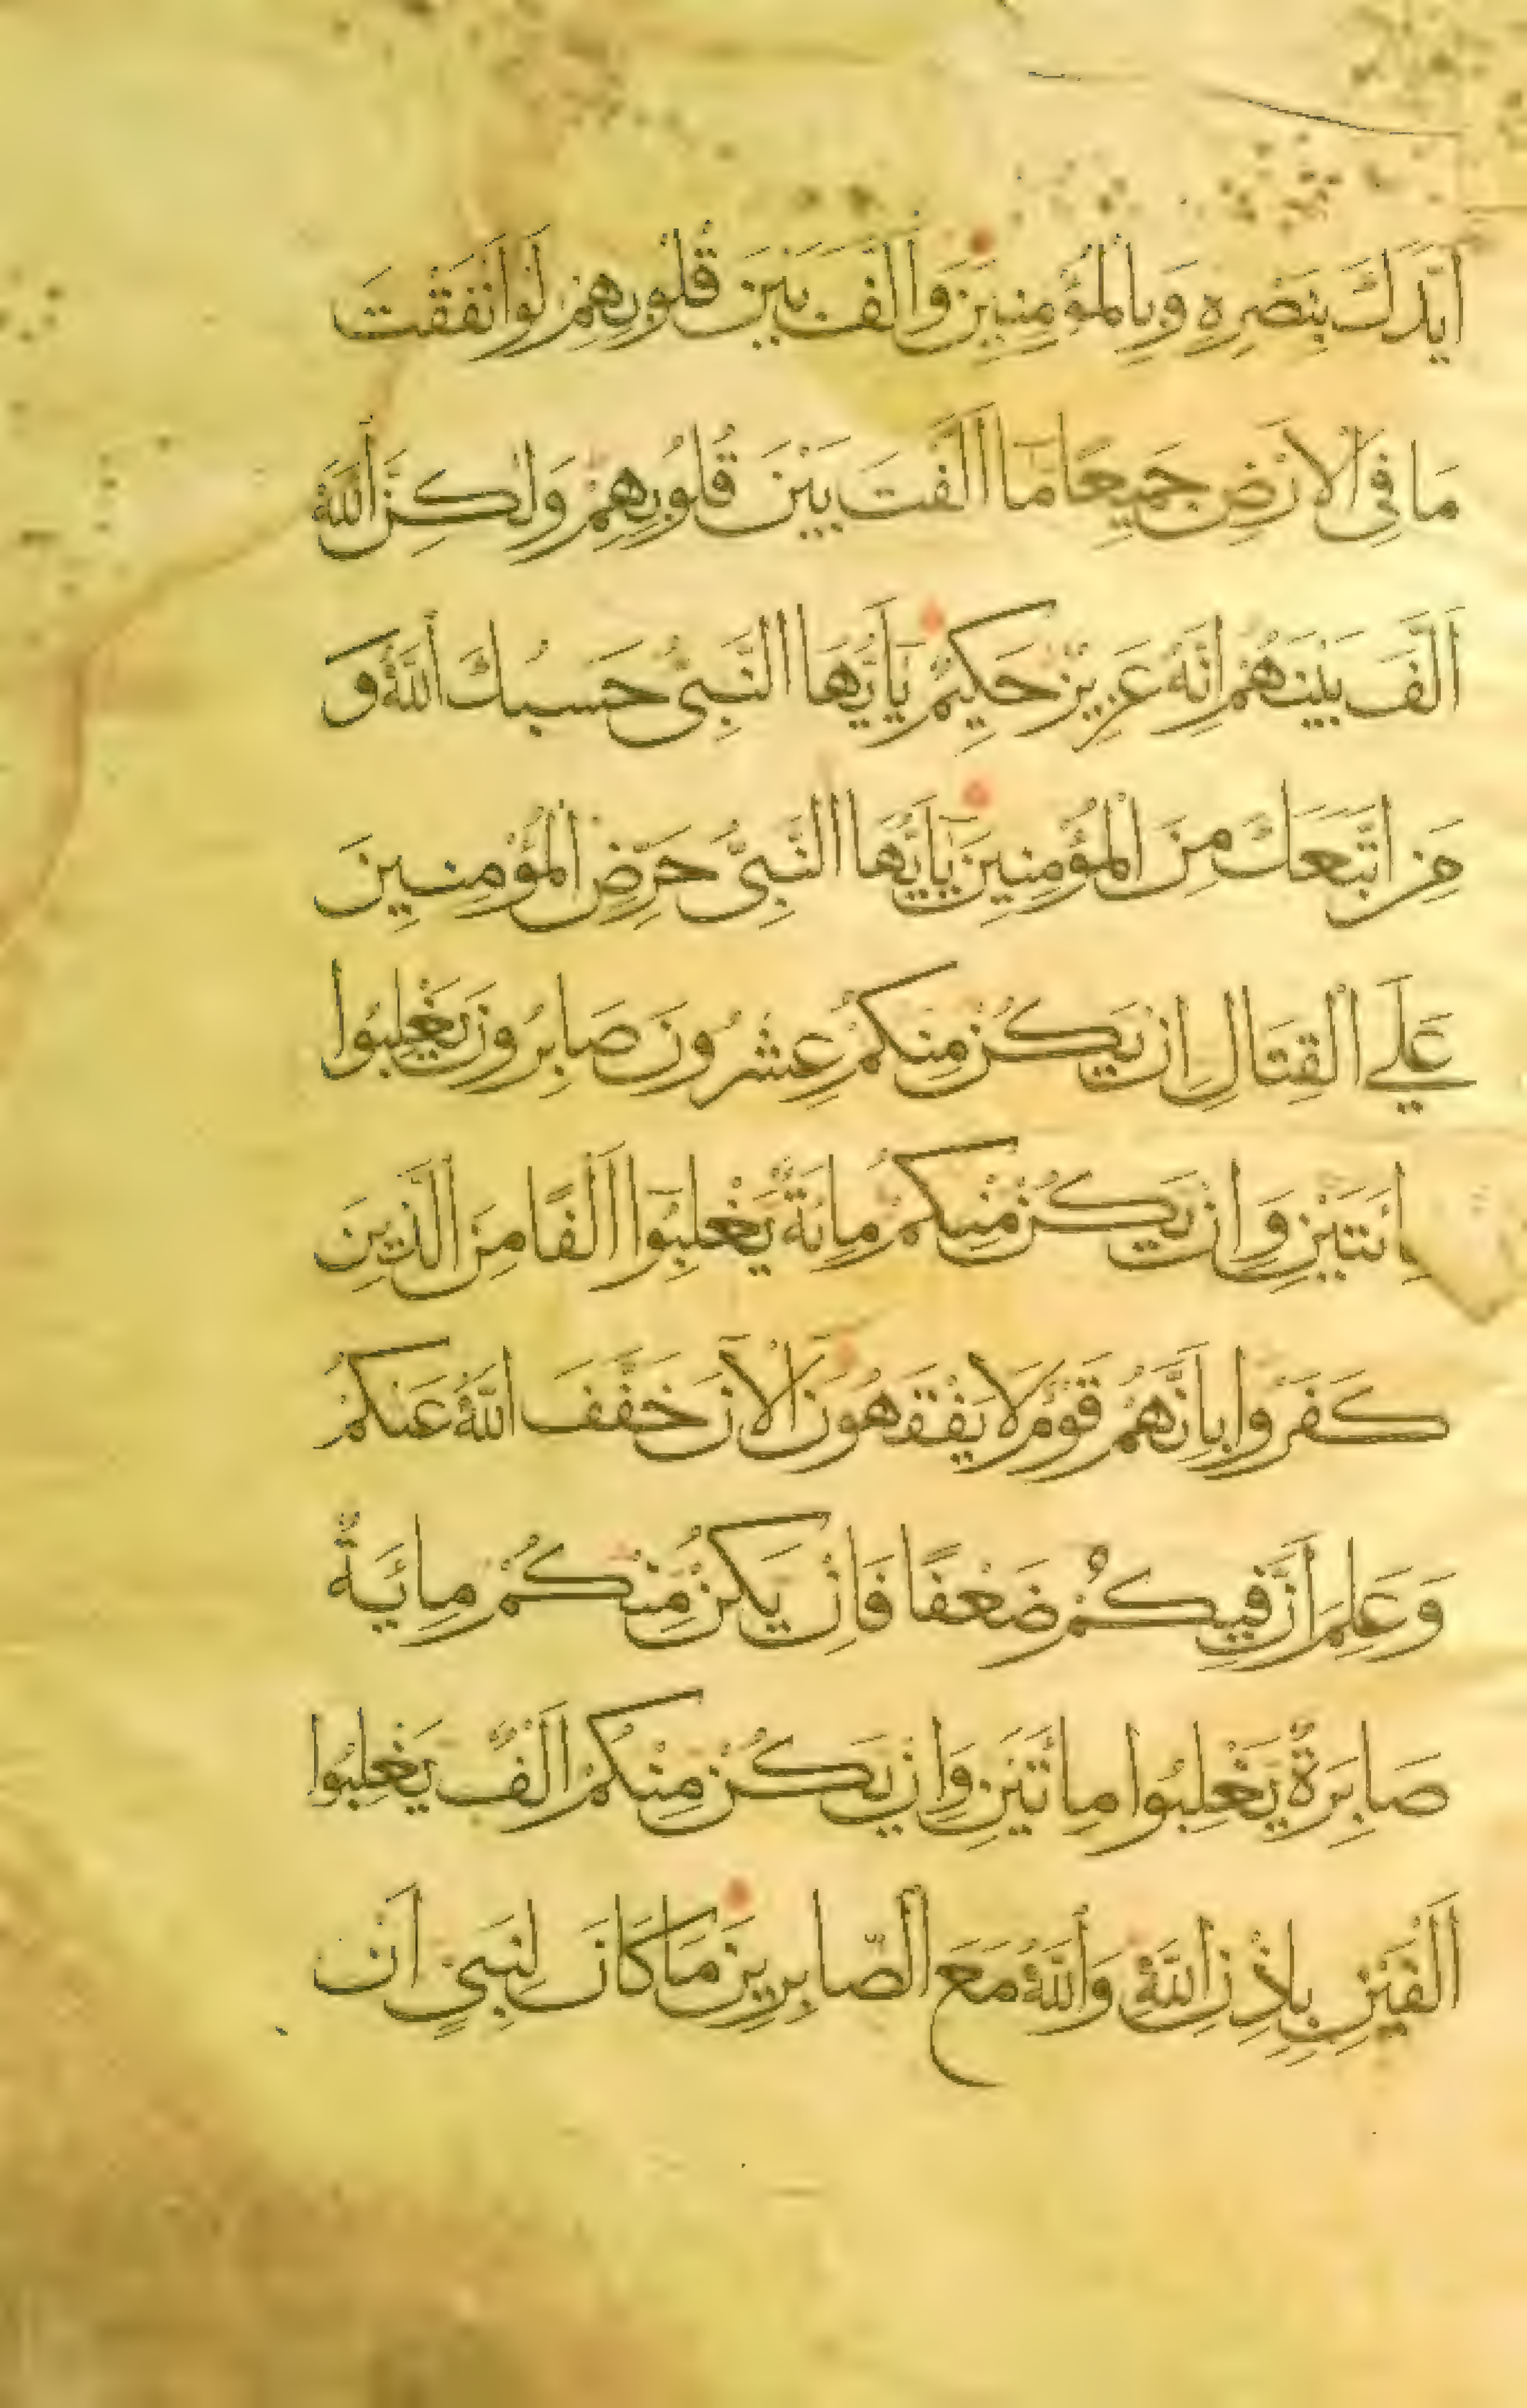 اَيَّدَكَ بِنَصْرِهِ وَبِالْمُؤْمِنِينَ وَاَلَّفَ بَيْنَ قُلُوبِهِمْ لَوْ اَنْفَقْتَ
مَا فِى الْاَرْضِ جَمِيعًا مَا اَلَّفْتَ بَيْنَ قُلُوبِهِمْ وَلَكِنَّ اللّٰهَ
اَلَّفَ بَيْنَهُمْ اِنَّهُ عَزِيزٌ حَكِيمٌ يَا اَيُّهَا النَّبِىُّ حَسْبُكَ اللّٰهُ وَ
مَنِ اتَّبَعَكَ مِنَ الْمُؤْمِنِينَ يَا اَيُّهَا النَّبِىُّ حَرِّضِ الْمُؤْمِنِينَ
عَلَي الْقِتَالِ اِنْ يَكُنْ مِنْكُمْ عِشْرُونَ صَابِرُونَ يَغْلِبُوا
مِائَتَيْنِ وَاِنْ يَكُنْ مِنْكُمْ مِائَةٌ يَغْلِبُوا اَلْفًا مِنَ الَّذِينَ
كَفَرُوا بِاَنَّهُمْ قَوْمٌ لَا يَفْقَهُونَ الْآنَ خَفَّفَ اللّٰهُ عَنْكُمْ
وَعَلِمَ اَنَّ فِيكُمْ ضَعْفًا فَاِنْ يَكُنْ مِنْكُمْ مِائَةٌ
صَابِرَةٌ يَغْلِبُوا مِائَتَيْنِ وَاِنْ يَكُنْ مِنْكُمْ اَلْفٌ يَغْلِبُوا
اَلْفَيْنِ بِاِذْنِ اللّٰهِ وَاللّٰهُ مَعَ الصَّابِرِينَ مَا كَانَ لِنَبِىٍّ اَنْ